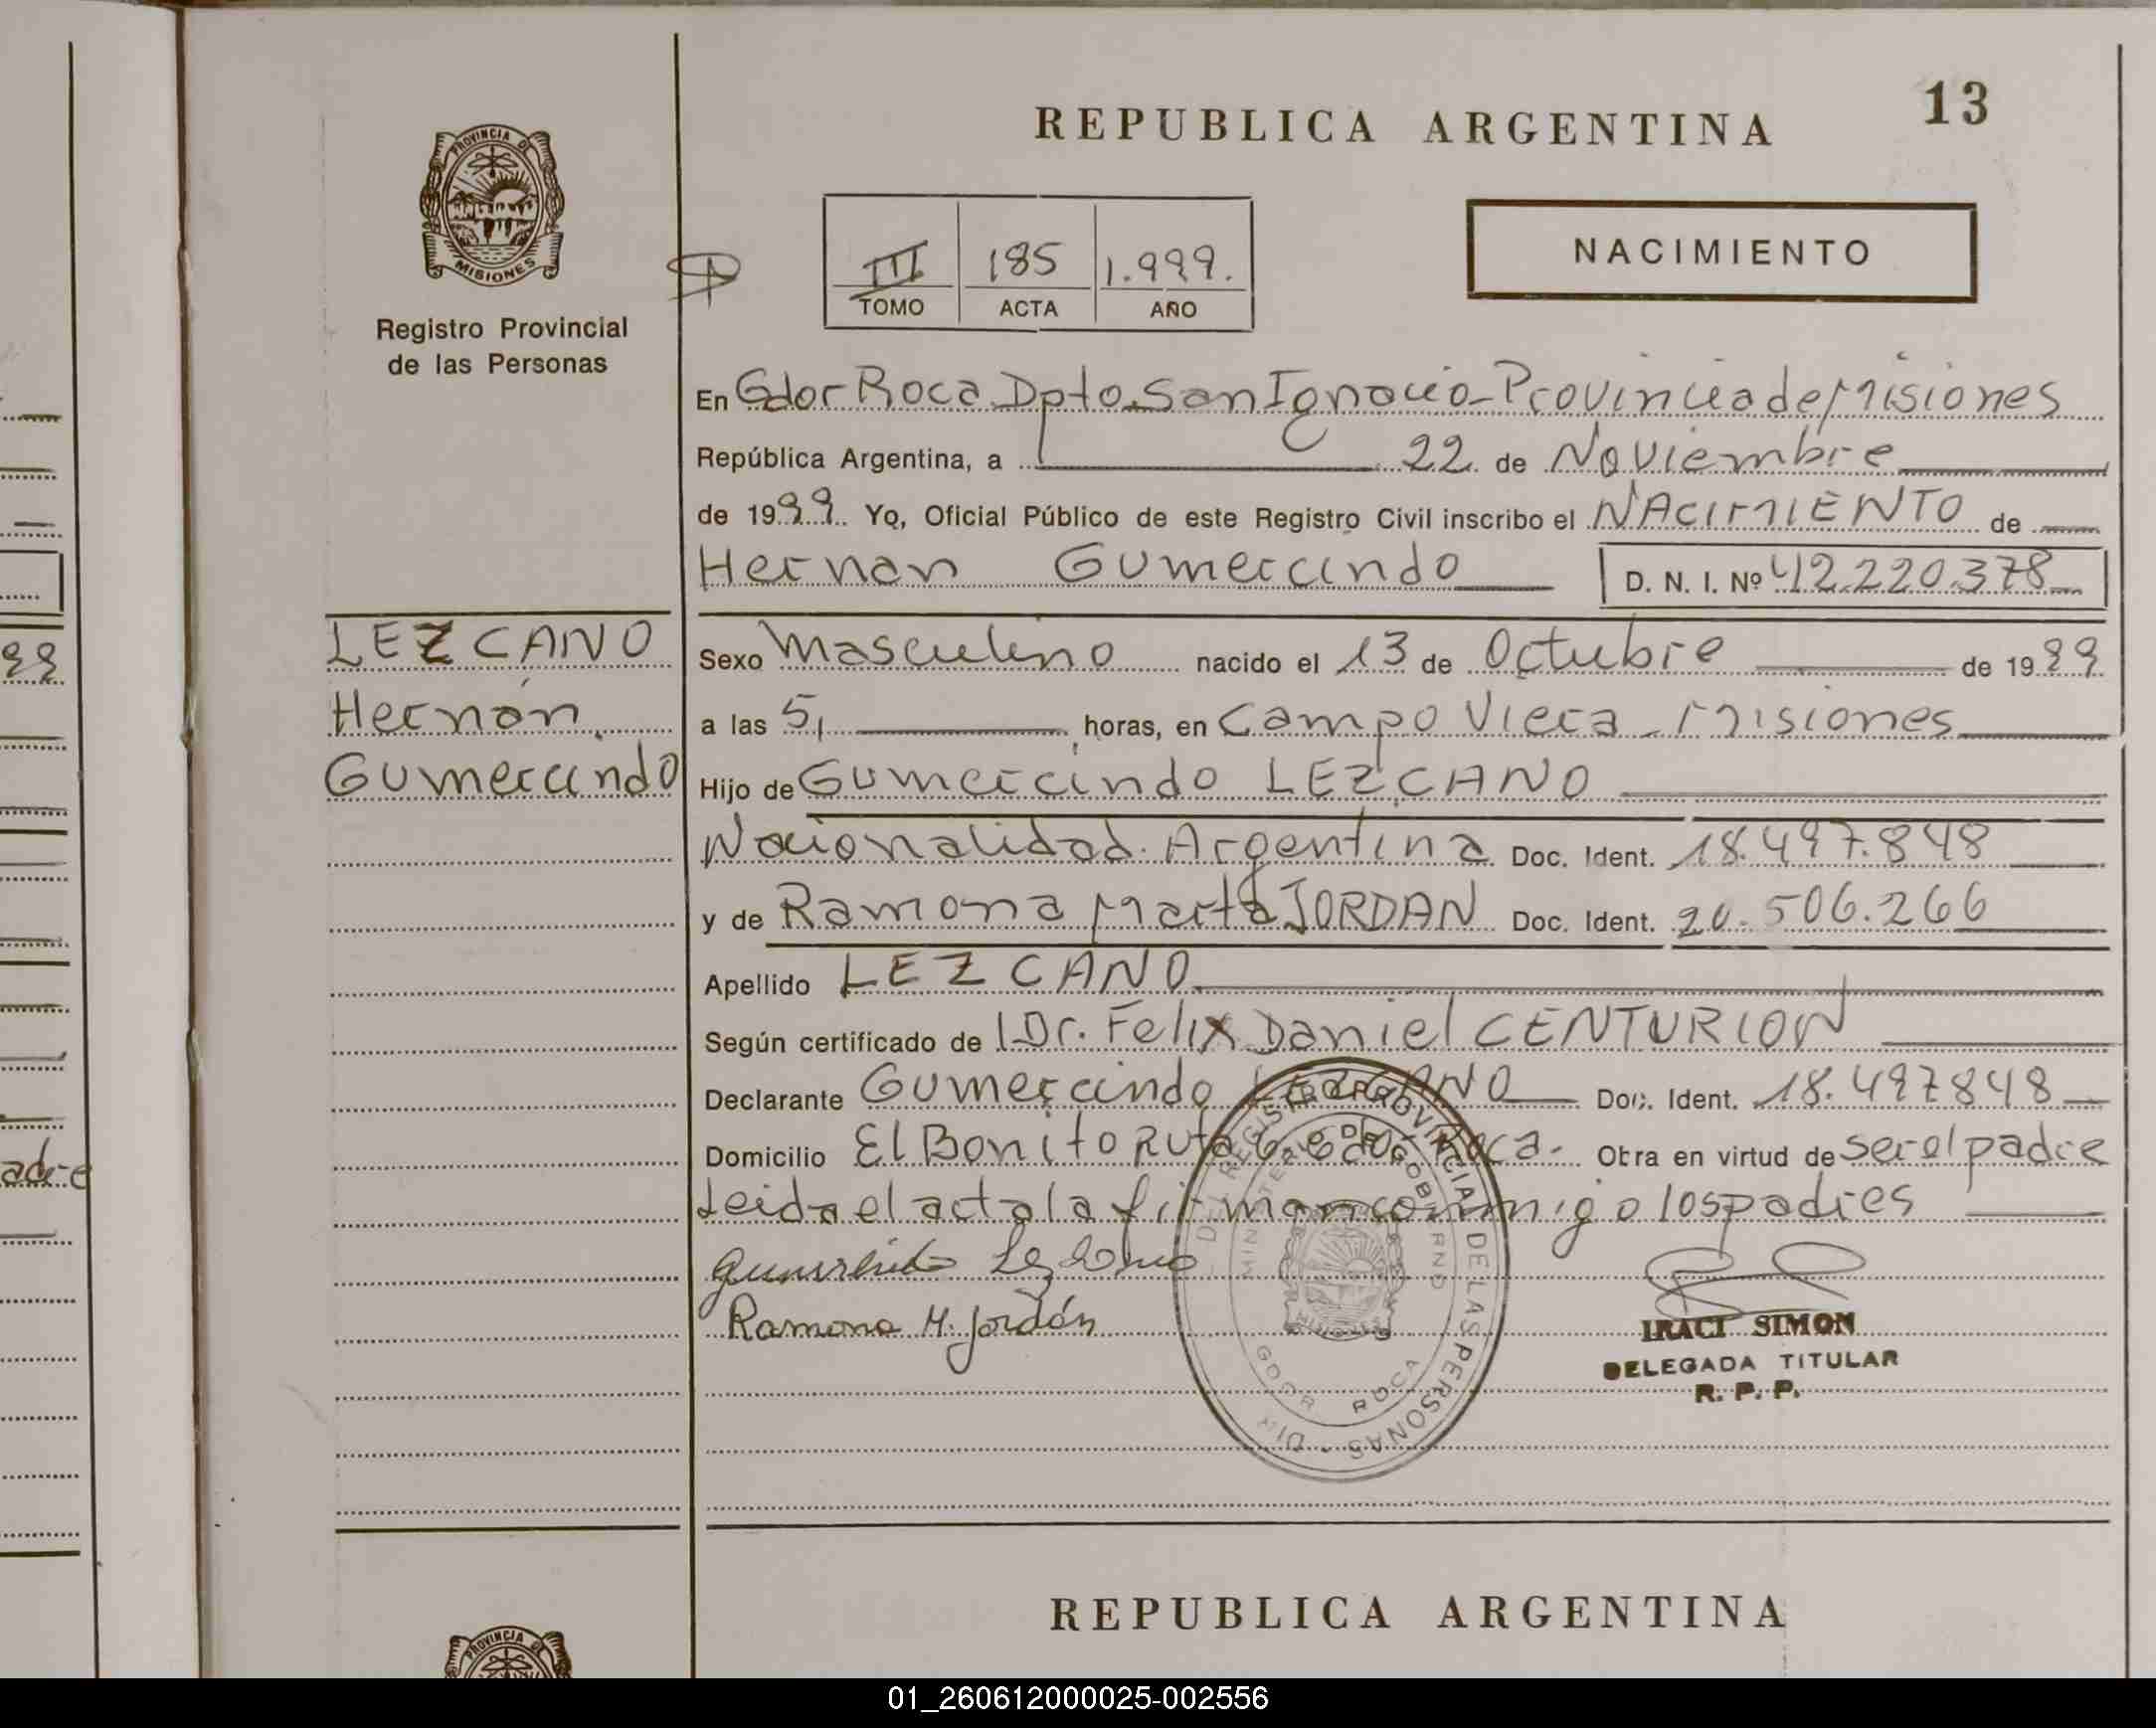 13
REPUBLICA ARGENTINA
PROVINCIA DE
MISIONES
Registro Provincial
de las Personas
III 185 1.999.
TOMO ACTA AÑO
NACIMIENTO
En Gdor Roca Dpto. San Ignacio - Provincia de Misiones
República Argentina, a 22 de Noviembre
de 1999. Yo, Oficial Público de este Registro Civil inscribo el NACIMIENTO de
Hernan Gumercindo D. N. I. Nº 42.220.378
LEZCANO
Hernán
Gumercindo
Sexo Masculino nacido el 13 de Octubre de 1999
a las 5, horas, en Campo Viera - Misiones
Hijo de Gumercindo LEZCANO
Nacionalidad Argentina Doc. Ident. 18.497.848
y de Ramona Marta JORDAN Doc. Ident. 20.506.266
Apellido LEZCANO
Según certificado de Dr. Felix Daniel CENTURION
Declarante Gumercindo LEZCANO Doc. Ident. 18.497848
Domicilio El Bonito Ruta 6 Gdor Roca. Obra en virtud de ser el padre
Leida el acta la firman conmigo los padres
Gumercindo Lezcano
Ramona M. Jordán
DEL REGISTRO PROVINCIAL DE LAS PERSONAS - DIR
MINISTERIO DE GOBIERNO
GDOR ROCA
IRACI SIMON
DELEGADA TITULAR
R. P. P.
99
adre
REPUBLICA ARGENTINA
PROVINCIA DE
01_260612000025-002556